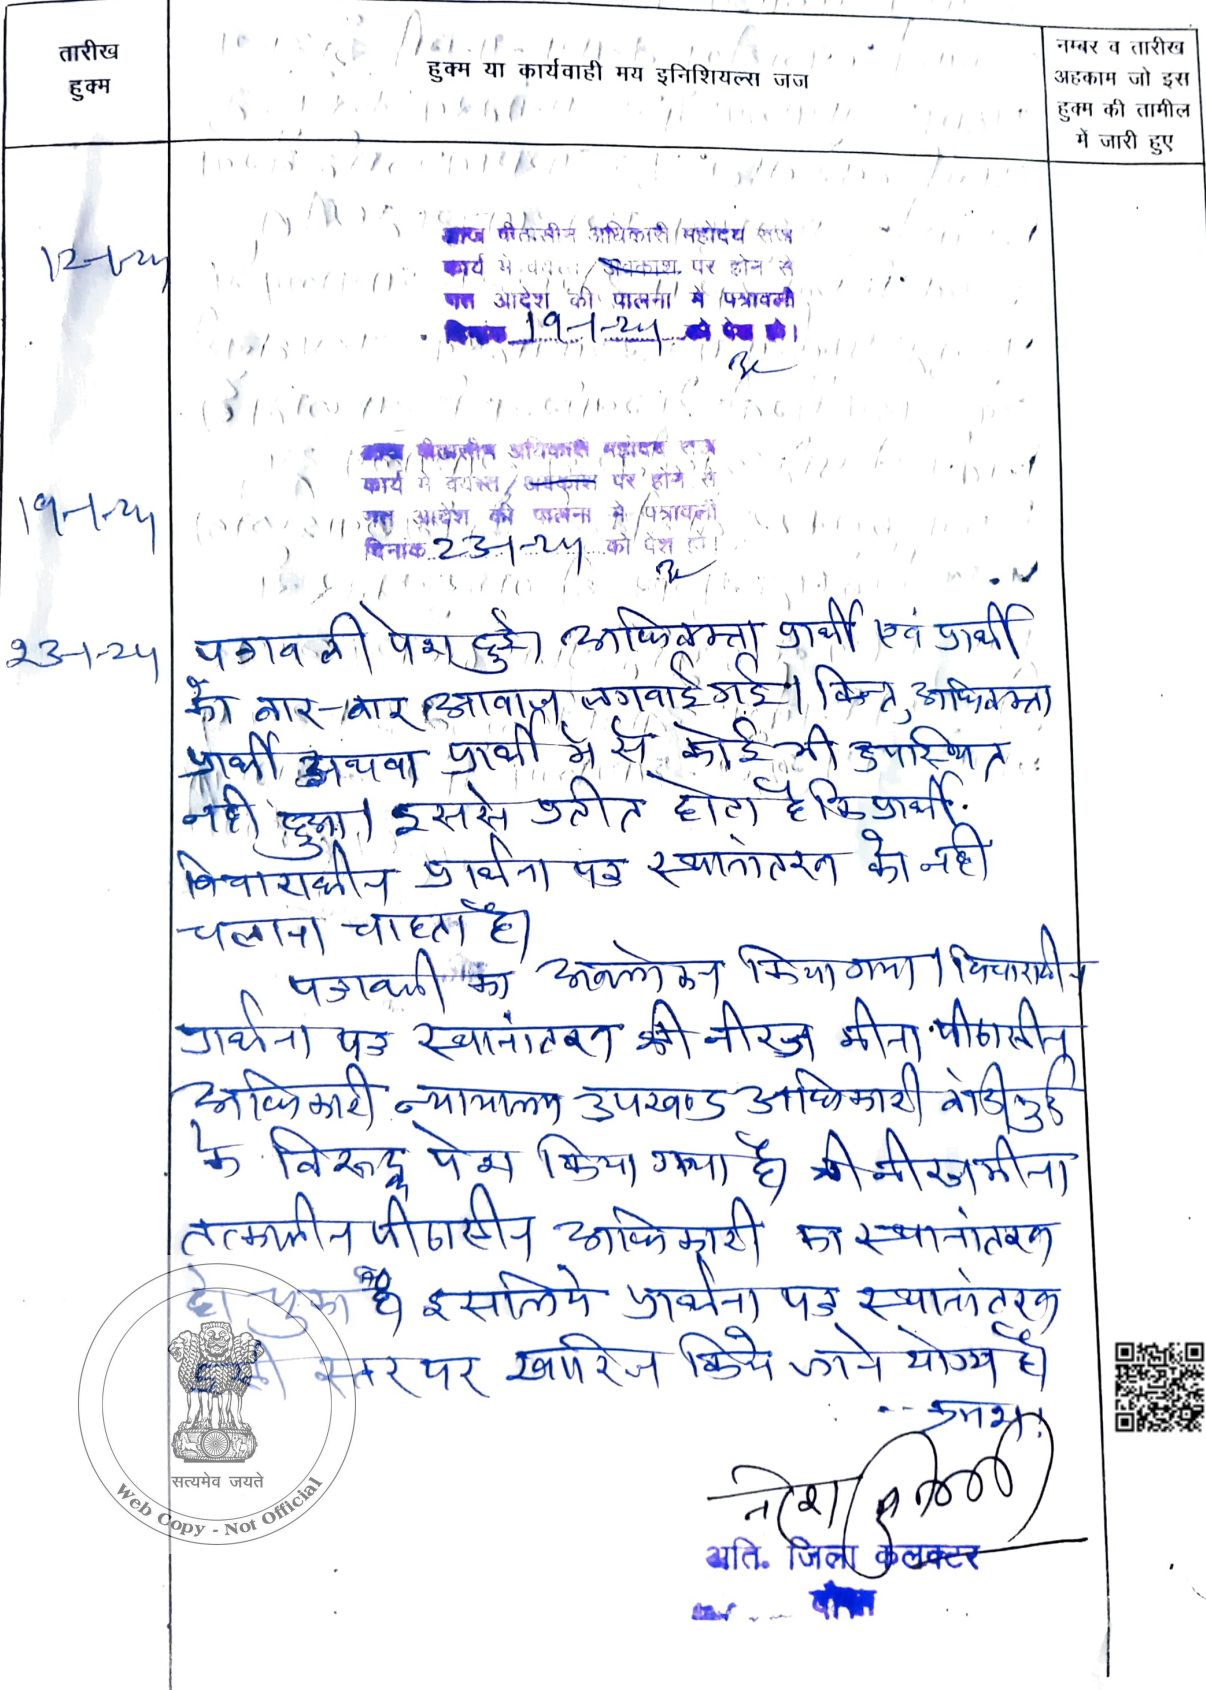 तारीख
हुक्म
हुक्म या कार्यवाही मय इनिशियल्स जज
नम्बर व तारीख
अहकाम जो इस
हुक्म की तामील
में जारी हुए
12-1-24
आज पीठासीन अधिकारी महोदय राज
कार्य में व्यस्त/अवकाश पर होने से
गत आदेश की पालना में पत्रावली
दिनांक 19-1-24 को पेश हो।
19-1-24
आज पीठासीन अधिकारी महोदय राज
कार्य में व्यस्त/अवकाश पर होने से
गत आदेश की पालना में पत्रावली
दिनांक 23-1-24 को पेश हो।
23-1-24 पत्रावली पेश हुई। अधिवक्ता प्रार्थी एवं प्रार्थी
को बार-बार आवाज लगवाई गई। किन्तु अधिवक्ता
प्रार्थी अथवा प्रार्थी में से कोई भी उपस्थित
नही हुआ। इससे प्रतीत होता है कि प्रार्थी
विचाराधीन प्रार्थना पत्र स्थानांतरण को नही
चलाना चाहता है।
पत्रावली का अवलोकन किया गया। विचाराधीन
प्रार्थना पत्र स्थानांतरण श्री नीरज मीना पीठासीन
अधिकारी न्यायालय उपखण्ड अधिकारी
के विरूद्ध पेश किया गया है। श्री नीरज मीना
तत्कालीन पीठासीन अधिकारी का स्थानांतरण
हो चुका है। इसलिये प्रार्थना पत्र स्थानांतरण
इसी स्तर पर खारिज किये जाने योग्य है।
-- क्रमशः
अति. जिला कलक्टर
सत्यमेव जयते
Web Copy - Not Official